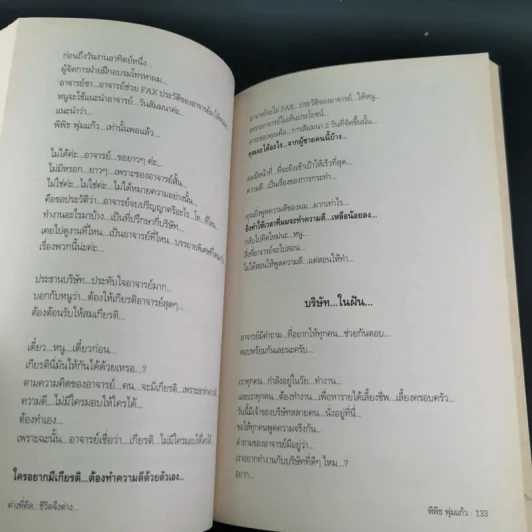 ก่อนถึงวันงานอาทิตย์หนึ่ง...
ผู้จัดการฝ่ายฝึกอบรมโทรหาผม...
อาจารย์ขา...อาจารย์ช่วย FAX ประวัติของอาจารย์มาให้
หนูจะใช้แนะนำอาจารย์...วันสัมมนาค่ะ...
แนะนำว่า...
พิพิธ พุ่มแก้ว...เท่านั้นพอแล้ว...
ไม่ได้ค่ะ...อาจารย์...ขอยาวๆ ค่ะ...
ไม่มีหรอก...ยาวๆ...เพราะของอาจารย์สั้น...
ไม่ใช่ค่ะ...ไม่ใช่ค่ะ...ไม่ได้หมายความอย่างนั้น...
คือขอประวัติว่า...อาจารย์จบปริญญาตรีอะไร...โท...ที่ไหน...
ทำงานอะไรมาบ้าง...เป็นที่ปรึกษากี่บริษัท...
เคยไปดูงานที่ไหน...เป็นอาจารย์ที่ไหน...บรรยายพิเศษที่ไหน
เรื่องพวกนี้น่ะค่ะ...
ประธานบริษัท...ประทับใจอาจารย์มาก...
บอกกับหนูว่า...ต้องให้เกียรติอาจารย์สุดๆ...
ต้องต้อนรับให้สมเกียรติ...
เดี๋ยว...หนู...เดี๋ยวก่อน...
เกียรตินี่มันให้กันได้ด้วยเหรอ...?
ตามความคิดของอาจารย์...คน...จะมีเกียรติ...เพราะ
ความดี...ไม่มีใครมอบให้ใครได้...
ต้องทำเอง...
เพราะฉะนั้น...อาจารย์เชื่อว่า...เกียรติ...ไม่มีใครมอบให้ได้
ใครอยากมีเกียรติ...ต้องทำความดีด้วยตัวเอง...
: ต่างที่คิด...ชีวิตจึงต่าง...
อาจารย์จะไม่ FAX...ประวัติของอาจารย์...ให้หนู...
เพราะอาจารย์ไม่เห็นประโยชน์...
ภาระของคุณคือ...การสัมมนา 2 วันที่จัดขึ้นนั้น...
คุณจะได้อะไร...จากผู้ชายคนนี้บ้าง...
ผมมีหน้าที่...ที่จะยิงเข้าเป้าให้เร็วที่สุด...
ความดี...เป็นเรื่องของการกระทำ...
คุณยิ่งพูดความดีของผม...มากเท่าไร...
ยิ่งทำให้เวลาที่ผมจะทำความดี...เหลือน้อยลง...
กลับไปคิดใหม่นะ...หนู...
สิ่งที่อาจารย์จะไปสอน...
ไม่ได้สอนให้พูดความดี...แต่สอนให้ทำ...
บริษัท...ในฝัน...
อาจารย์มีคำถาม...ที่อยากให้ทุกคน...ช่วยกันตอบ...
ตอบพร้อมกันเลยนะครับ...
เราทุกคน...กำลังอยู่ในวัย...ทำงาน...
และเราทุกคน...ต้องทำงาน...เพื่อหารายได้เลี้ยงชีพ...เลี้ยงครอบครัว...
วันนี้มีเจ้าของบริษัทหลายคน...นั่งอยู่ที่นี่...
ขอให้ทุกคนพูดความจริงกัน...
คำถามของอาจารย์มีอยู่ว่า...
เราอยากทำงานกับบริษัทที่ดีๆ ไหม...?
อยาก...
พิพิธ พุ่มแก้ว : 133